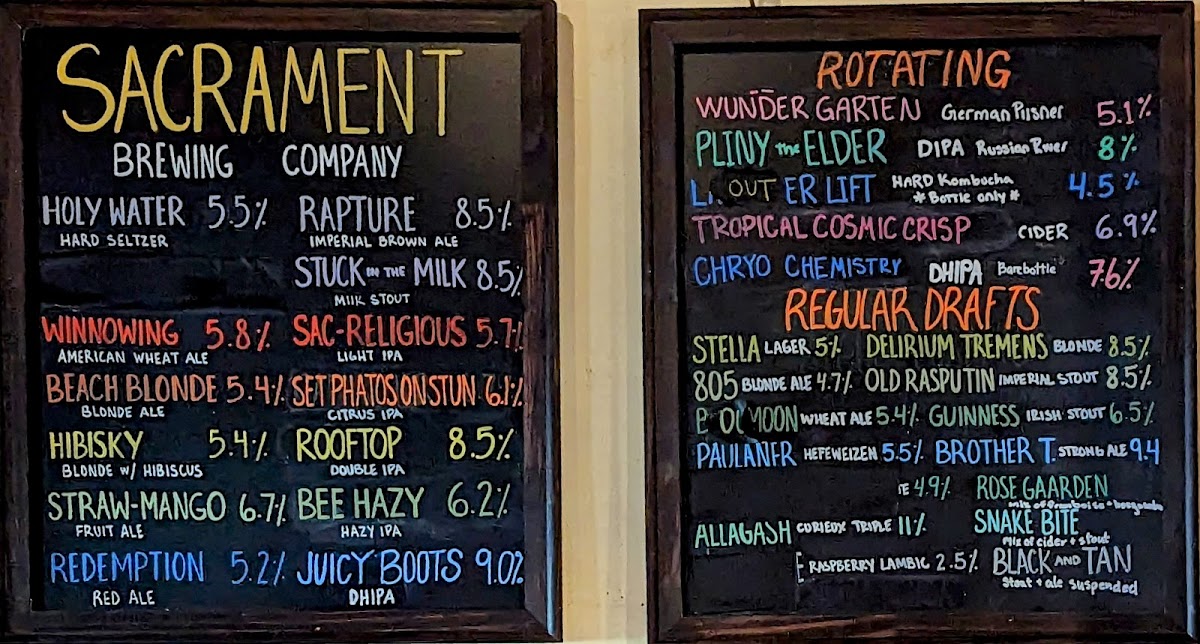 SACRAMENT
BREWING COMPANY
HOLY WATER 5.5%
HARD SELTZER
WINNOWING 5.8%
AMERICAN WHEAT ALE
BEACH BLONDE 5.4%
BLONDE ALE
HIBISKY 5.4%
BLONDE W/ HIBISCUS
STRAW-MANGO 6.7%
FRUIT ALE
REDEMPTION 5.2%
RED ALE
RAPTURE 8.5%
IMPERIAL BROWN ALE
STUCK IN THE MILK 8.5%
MILK STOUT
SAC-RELIGIOUS 5.7%
LIGHT IPA
SET PHATOS ON STUN 6.1%
CITRUS IPA
ROOFTOP 8.5%
DOUBLE IPA
BEE HAZY 6.2%
HAZY IPA
JUICY BOOTS 9.0%
DHIPA
ROTATING
WUNDER GARTEN German Pilsner 5.1%
PLINY the ELDER DIPA Russian River 8%
OUT ER LIFT HARD Kombucha 4.5%
*Bottle only*
TROPICAL COSMIC CRISP CIDER 6.9%
CHRYO CHEMISTRY DHIPA Barebottle 7.6%
REGULAR DRAFTS
STELLA LAGER 5% DELIRIUM TREMENS BLONDE 8.5%
805 BLONDE ALE 4.7% OLD RASPUTIN IMPERIAL STOUT 8.5%
MOON WHEAT ALE 5.4% GUINNESS IRISH STOUT 6.5%
PAULANER HEFEWEIZEN 5.5% BROTHER T. STRONG ALE 9.4
TE 4.9% ROSE GAARDEN
mix of framboise +
ALLAGASH CURIEUX TRIPLE 11% SNAKE BITE
Mix of cider + stout
E RASPBERRY LAMBIC 2.5% BLACK AND TAN
Stout + ale suspended